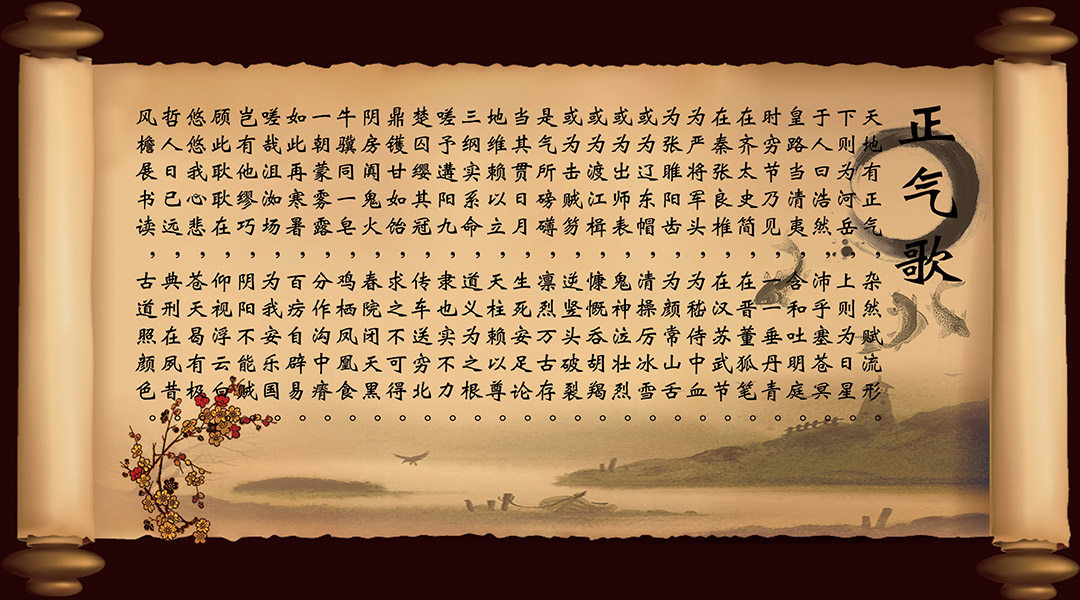 正气歌
天地有正气，杂然赋流形。
下则为河岳，上则为日星。
于人曰浩然，沛乎塞苍冥。
皇路当清夷，含和吐明庭。
时穷节乃见，一一垂丹青。
在齐太史简，在晋董狐笔。
在秦张良椎，在汉苏武节。
为严将军头，为嵇侍中血。
为张睢阳齿，为颜常山舌。
或为辽东帽，清操厉冰雪。
或为出师表，鬼神泣壮烈。
或为渡江楫，慷慨吞胡羯。
或为击贼笏，逆竖头破裂。
是气所磅礴，凛烈万古存。
当其贯日月，生死安足论。
地维赖以立，天柱赖以尊。
三纲实系命，道义为之根。
嗟予遘阳九，隶也实不力。
楚囚缨其冠，传车送穷北。
鼎镬甘如饴，求之不可得。
阴房阒鬼火，春院闭天黑。
牛骥同一皂，鸡栖凤凰食。
一朝蒙雾露，分作沟中瘠。
如此再寒暑，百疠自辟易。
嗟哉沮洳场，为我安乐国。
岂有他缪巧，阴阳不能贼。
顾此耿耿在，仰视浮云白。
悠悠我心悲，苍天曷有极。
哲人日已远，典刑在夙昔。
风檐展书读，古道照颜色。